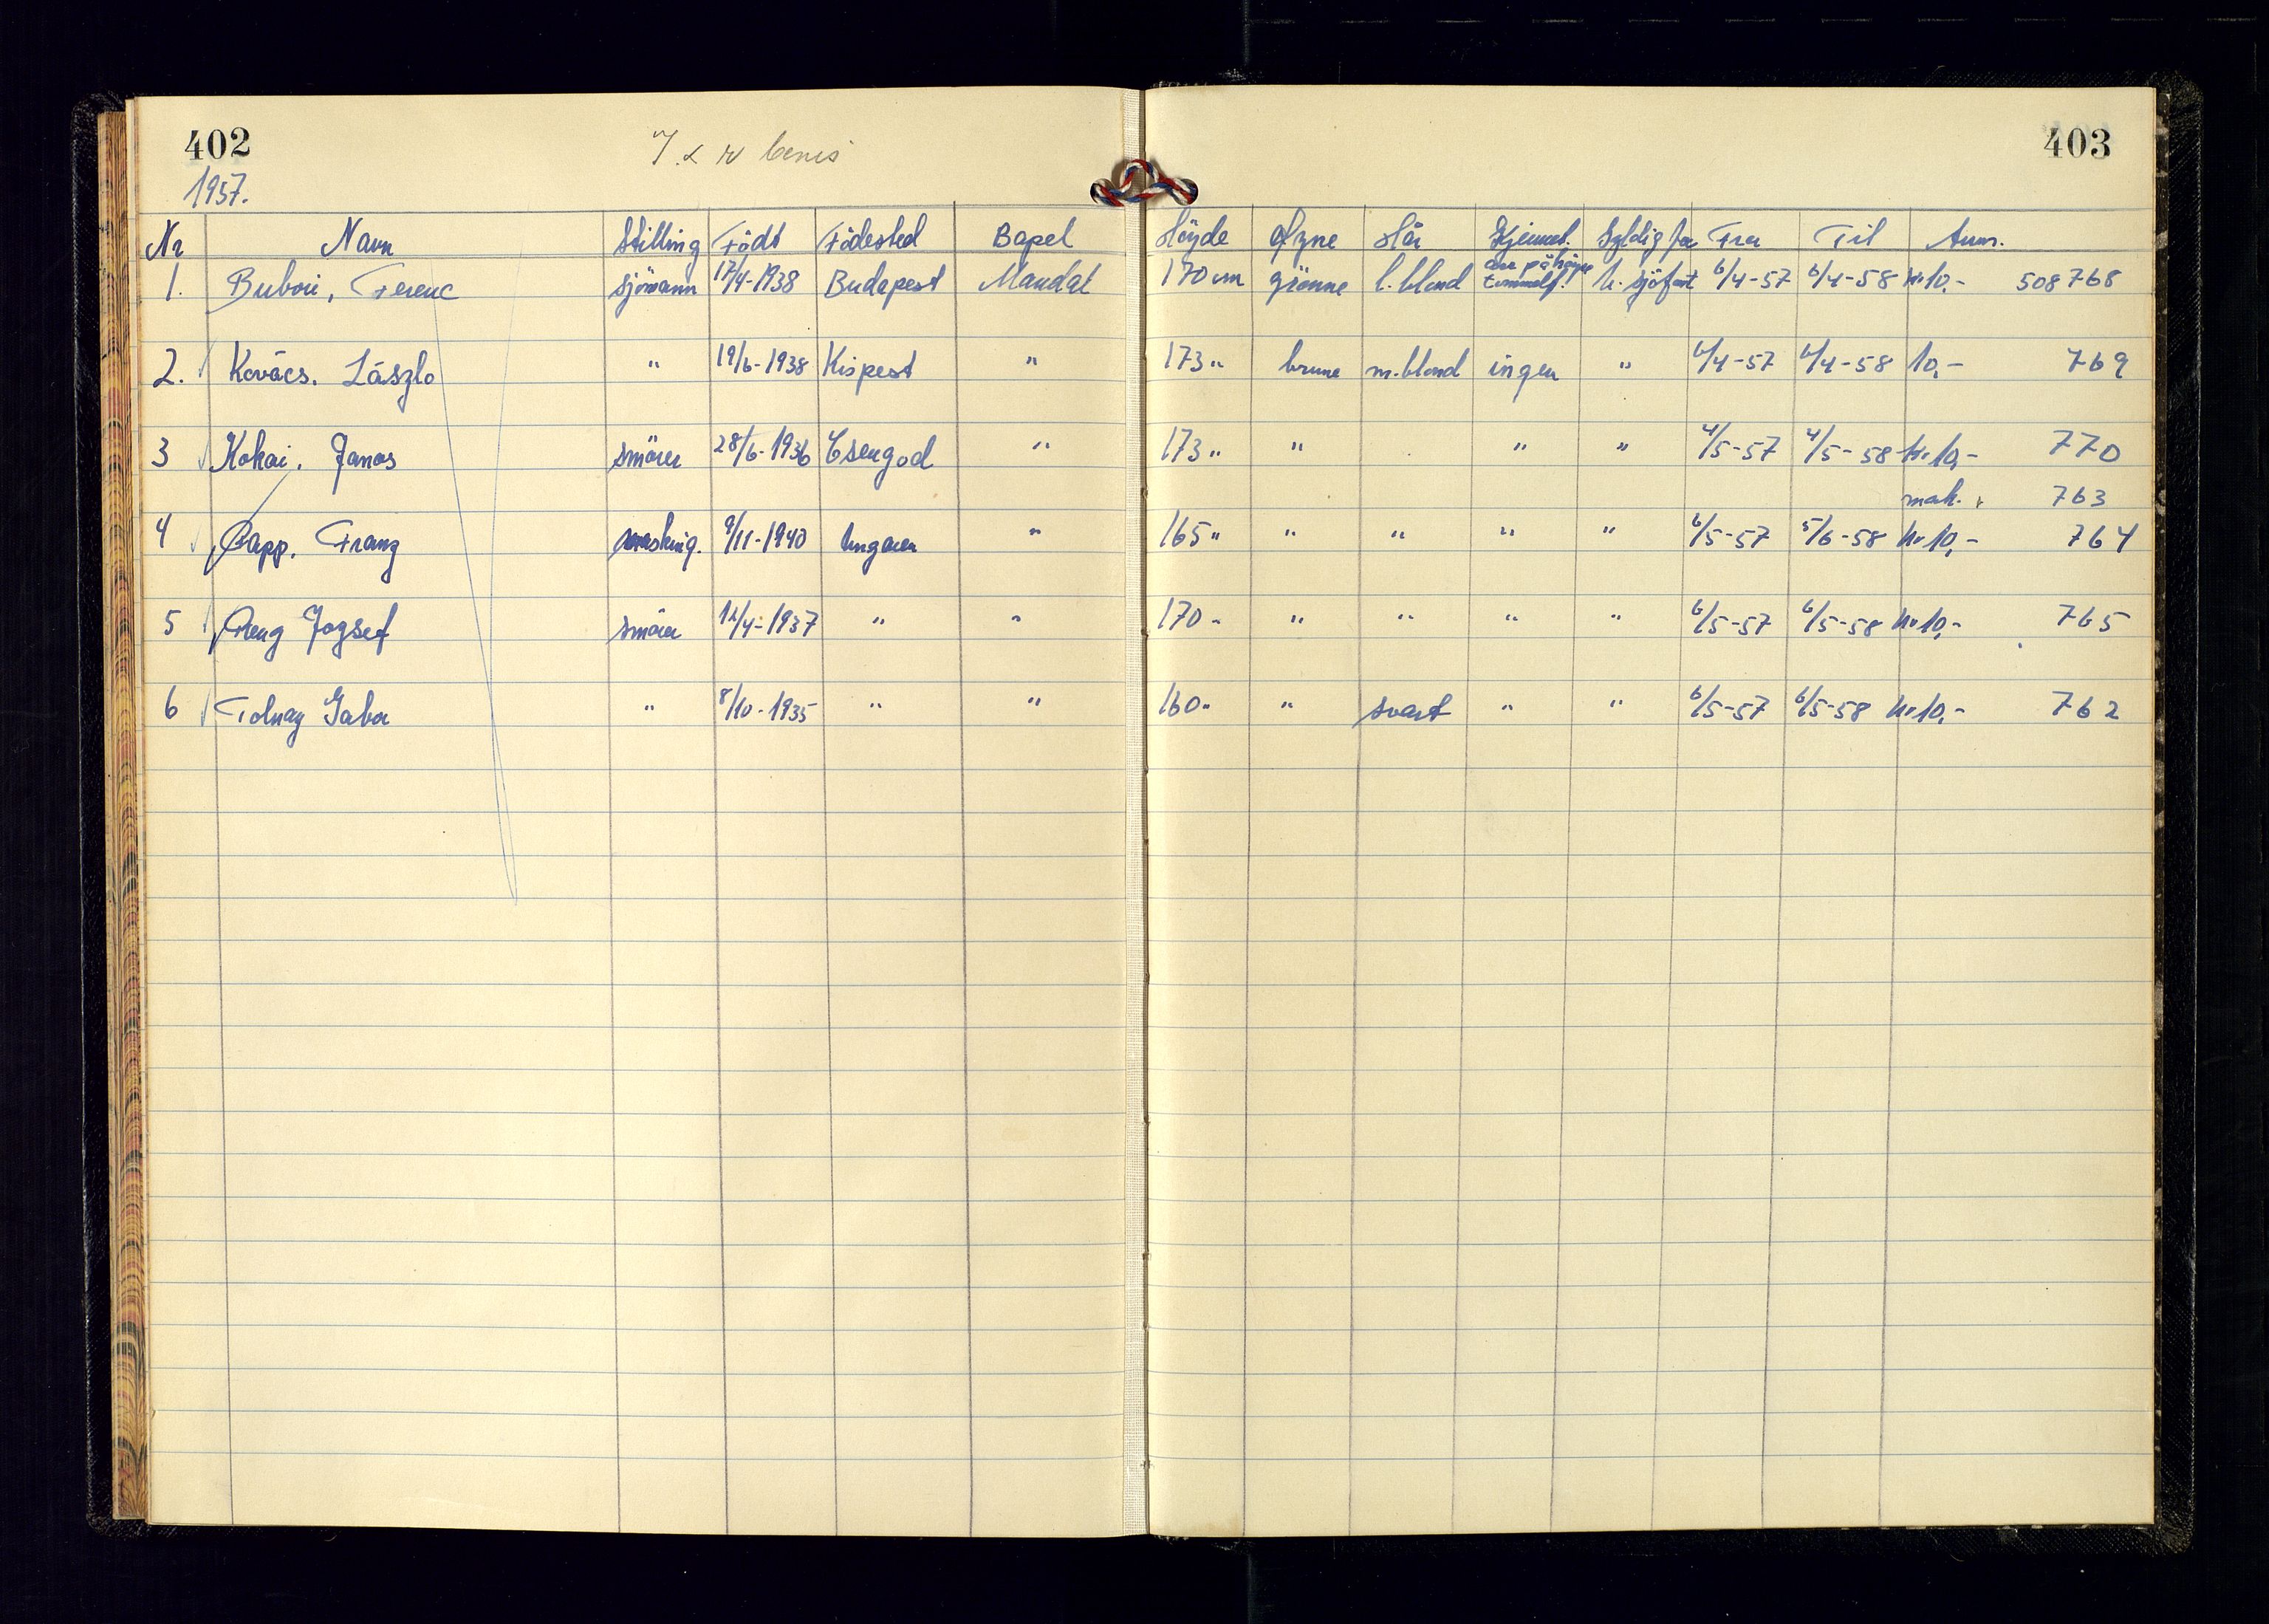 402
403
1957.
Nr Navn Stilling Födt Födested Bopel Höyde Øyne Hår Kjennet. Gyldig for Fra Til Anm.
1. Buboi, Ferenc sjömann 17/4-1938 Budapest Mandal 170 cm grönne l.blond arr på höyre tommelf. u. sjöfart 6/4-57 6/4-58 kr 10.- 508768
2. Kovács. Lászlo " 19/6-1938 Kispest " 173 " brune m.blond ingen " 6/4-57 6/4-58 10,- 769
3 Kokai, Janos smörer 28/6-1936 Csengod " 173 " " " " 4/5-57 4/5-58 kr 10,- 770
mak. 763
4 Papp, Franz masking. 9/11-1940 Ungarn " 165 " " " " " 6/5-57 5/6-58 kr 10,- 764
5 Reng Jozsef smörer 12/4-1937 " " 170 - " " " " 6/5-57 6/5-58 kr 10,- 765
6 Tolnay Gabor " 8/10-1935 " " 160 " " svart " " 6/5-57 6/5-58 kr 10,- 762